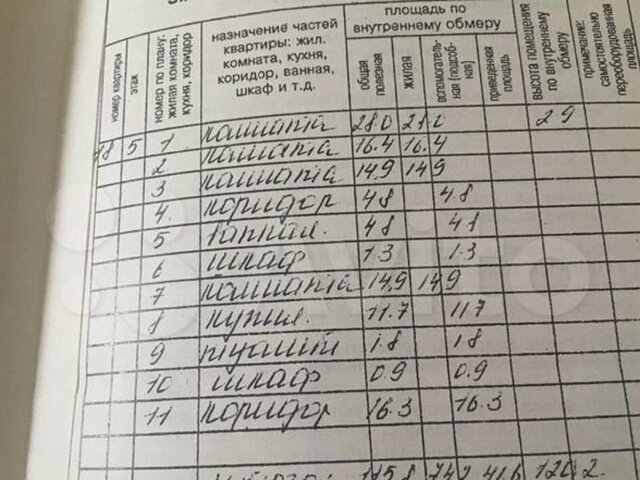 номер квартиры
этаж
номер по плану: жилая комната, кухня, коридор
назначение частей квартиры: жил. комната, кухня, коридор, ванная, шкаф и т.д.
площадь по внутреннему обмеру
общая полезная
жилая
вспомогательная (подсобная)
приведенная площадь
высота помещения по внутреннему обмеру
примечание: самостоятельно переоборудованная площадь
48 5 1 комната 28.0 28.0 2 9
2 комната 16.4 16.4
3 комната 14,9 149
4. коридор 48 4.8
5 ванная. 48 48
6 шкаф 1.3 1.3
7 комната 14,9 149
8 кухня. 11.7 117
9 туалет 1.8 18
10 шкаф 0.9 0.9
11 коридор 16.3 16.3
115.8 742 41.6 120.2
Avito